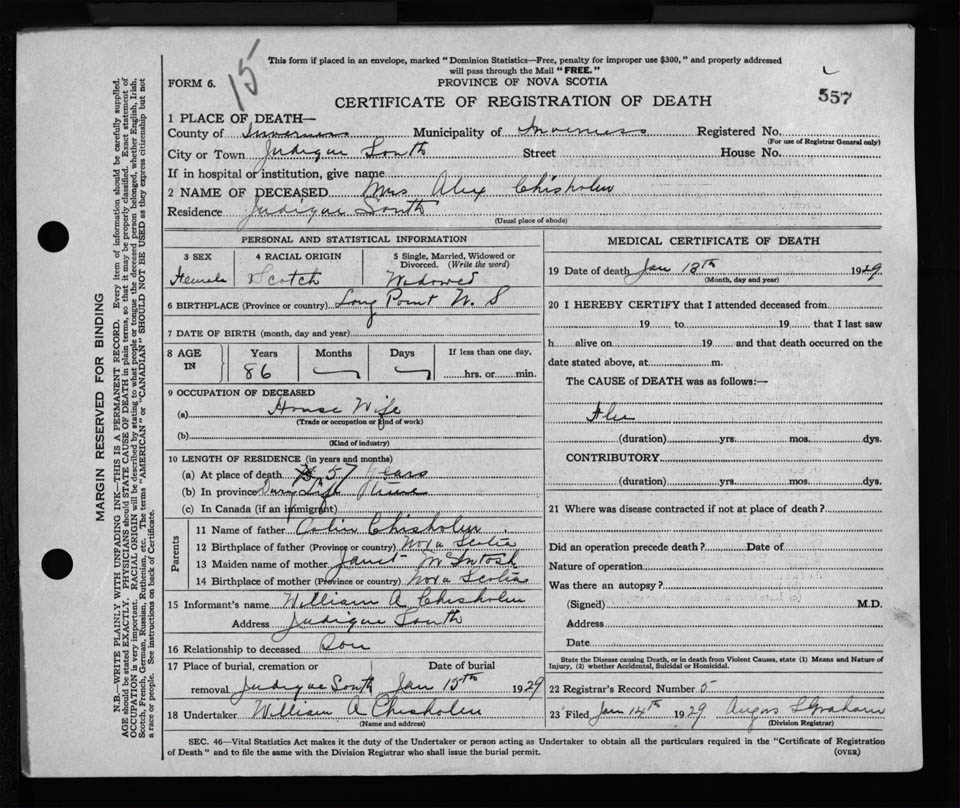 15
This form if placed in an envelope, marked "Dominion Statistics—Free, penalty for improper use $300," and properly addressed
will pass through the Mail "FREE."
FORM 6.
PROVINCE OF NOVA SCOTIA
557
CERTIFICATE OF REGISTRATION OF DEATH
1 PLACE OF DEATH—
County of Inverness Municipality of Inverness Registered No.
(For use of Registrar General only)
City or Town Judique South Street House No.
If in hospital or institution, give name
2 NAME OF DECEASED Mrs Alex Chisholm
Residence Judique South
(Usual place of abode)
PERSONAL AND STATISTICAL INFORMATION
3 SEX 4 RACIAL ORIGIN 5 Single, Married, Widowed or Divorced. (Write the word)
Female Scotch Widowed
6 BIRTHPLACE (Province or country) Long Point N. S
7 DATE OF BIRTH (month, day and year)
8 AGE IN Years Months Days If less than one day,
86 hrs. or min.
9 OCCUPATION OF DECEASED
(a) House Wife
(Trade or occupation or kind of work)
(b)
(Kind of industry)
10 LENGTH OF RESIDENCE (in years and months)
(a) At place of death 57 years
(b) In province Life
(c) In Canada (if an immigrant)
Parents
11 Name of father Colin Chisholm
12 Birthplace of father (Province or country) Nova Scotia
13 Maiden name of mother Janet McIntosh
14 Birthplace of mother (Province or country) Nova Scotia
15 Informant's name William A Chisholm
Address Judique South
16 Relationship to deceased Son
17 Place of burial, cremation or Date of burial
removal Judique South Jan 15th 1929
18 Undertaker William A Chisholm
(Name and address)
MEDICAL CERTIFICATE OF DEATH
19 Date of death Jan 13th 1929
(Month, day and year)
20 I HEREBY CERTIFY that I attended deceased from
19 to 19 that I last saw
h alive on 19 and that death occurred on the
date stated above, at m.
The CAUSE of DEATH was as follows:—
Flu
(duration) yrs. mos. dys.
CONTRIBUTORY
(duration) yrs. mos. dys.
21 Where was disease contracted if not at place of death?
Did an operation precede death? Date of
Nature of operation
Was there an autopsy?
(Signed) M.D.
Address
Date
State the Disease causing Death, or in death from Violent Causes, state (1) Means and Nature of
Injury, (2) whether Accidental, Suicidal or Homicidal.
22 Registrar's Record Number 5
23 Filed Jan 14th 1929 Angus S Graham
(Division Registrar)
SEC. 46—Vital Statistics Act makes it the duty of the Undertaker or person acting as Undertaker to obtain all the particulars required in the "Certificate of Registration
of Death" and to file the same with the Division Registrar who shall issue the burial permit.
(OVER)
MARGIN RESERVED FOR BINDING
N.B.—WRITE PLAINLY WITH UNFADING INK—THIS IS A PERMANENT RECORD. Every item of information should be carefully supplied.
AGE should be stated EXACTLY. PHYSICIANS should STATE CAUSE OF DEATH in plain terms, so that it may be properly classified. Exact statement of
OCCUPATION is very important. RACIAL ORIGIN will be described by stating to what people or tongue the deceased person belonged, whether English, Irish,
Scotch, French, German, Russian, Ruthenian, etc. The terms "AMERICAN" or "CANADIAN" SHOULD NOT BE USED as they express citizenship but not
a race or people. See instructions on back of Certificate.